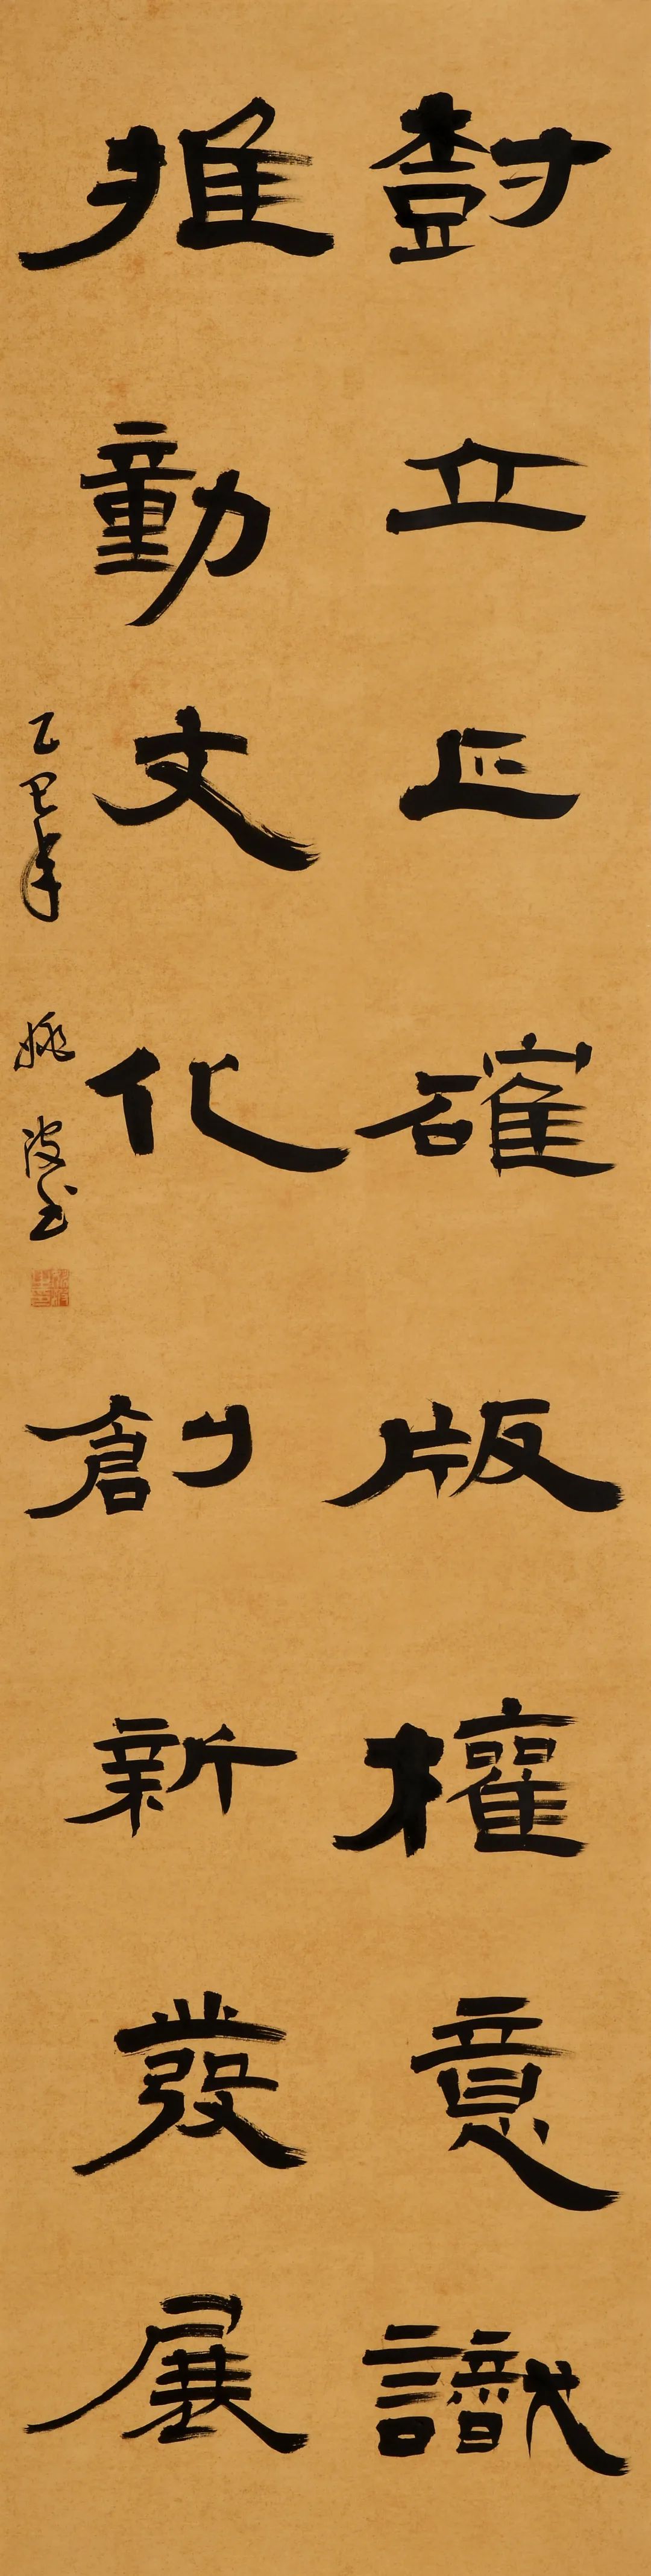 尌立正確版權意識
推動文化創新發展
乙巳年 姚波书